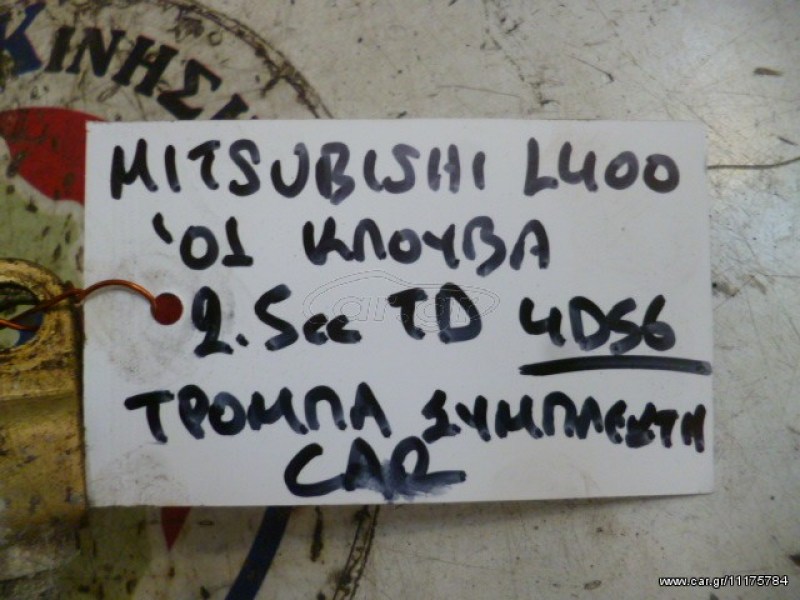 ΚΙΝΗΣΗ
MITSUBISHI L400
'01 ΚΛΟΥΒΑ
2.5cc TD 4D56
ΤΡΟΜΠΑ ΣΥΜΠΛΕΚΤΗ
CAR
car.gr
www.car.gr/11175784